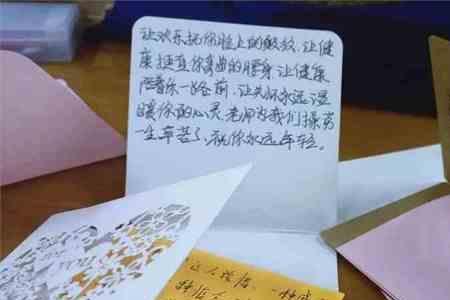 让欢乐抚你脸上的皱纹,让健
康挺直你弯曲的腰身,让健康
陪着你一路前,让关怀永远温
暖你的心灵,老师为我们操劳
一生辛苦了,祝你永远年轻。
一种